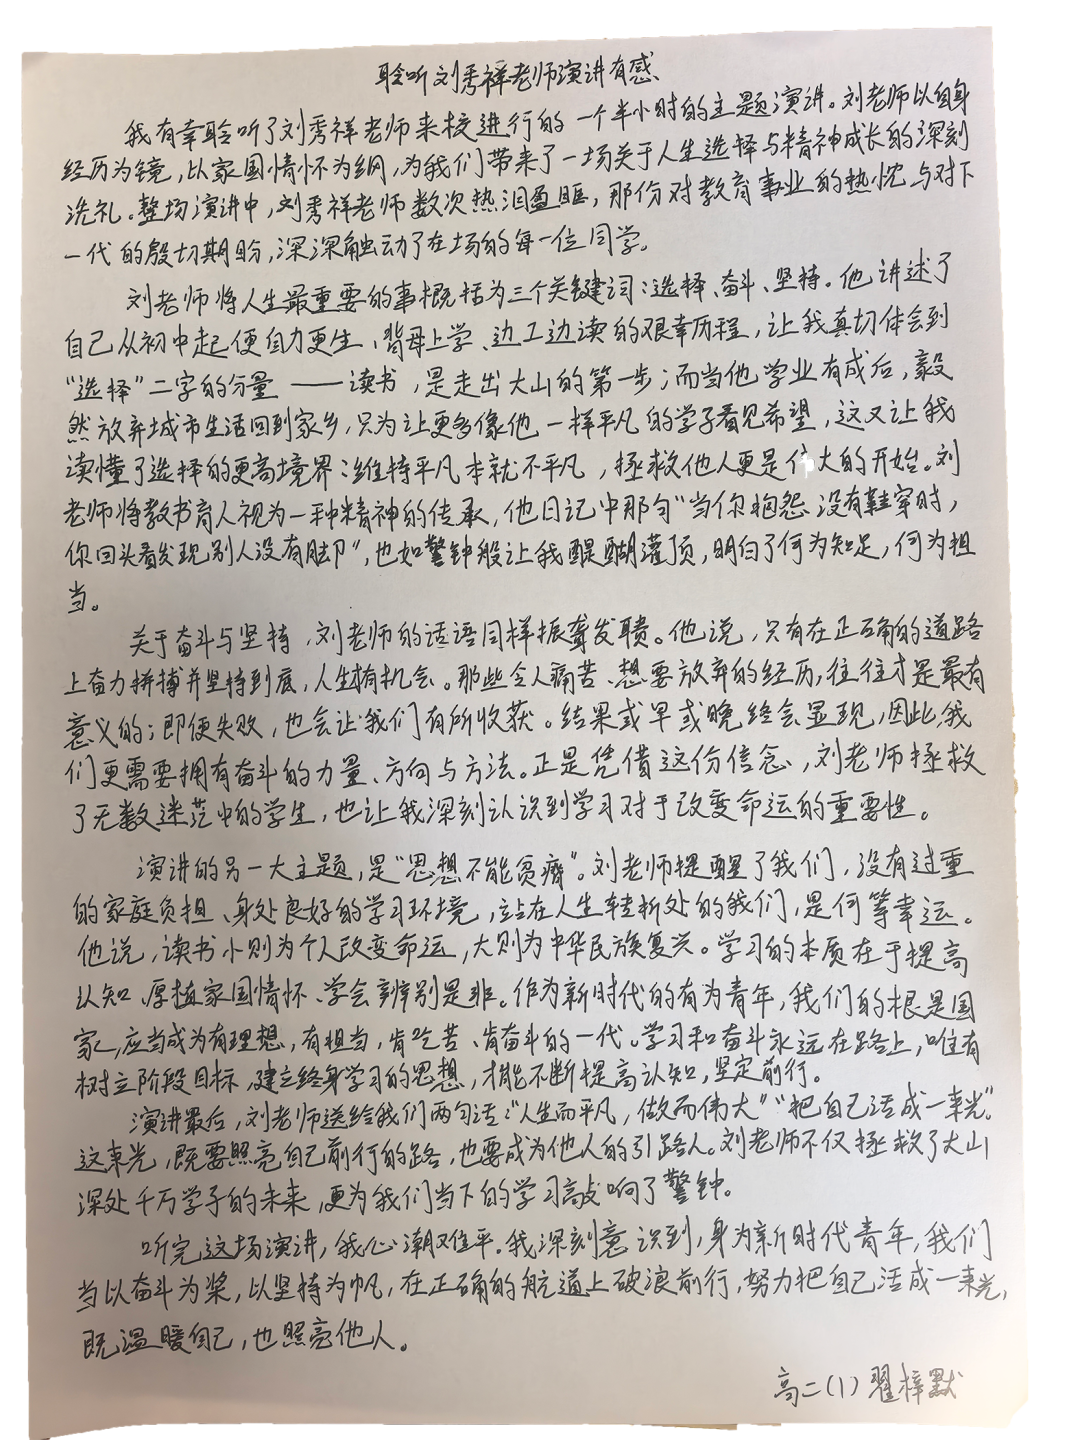 聆听刘秀祥老师演讲有感
我有幸聆听了刘秀祥老师来校进行的一个半小时的主题演讲。刘老师以自身
经历为镜,以家国情怀为纲,为我们带来了一场关于人生选择与精神成长的深刻
洗礼。整场演讲中,刘秀祥老师数次热泪盈眶,那份对教育事业的热忱与对下
一代的殷切期盼,深深触动了在场的每一位同学。
刘老师将人生最重要的事概括为三个关键词:选择、奋斗、坚持。他讲述了
自己从初中起便自力更生、背母上学、边工边读的艰幸历程,让我真切体会到
“选择”二字的分量——读书,是走出大山的第一步;而当他学业有成后,毅
然放弃城市生活回到家乡,只为让更多像他一样平凡的学子看见希望,这又让我
读懂了选择的更高境界:维持平凡本就不平凡,拯救他人更是伟大的开始。刘
老师将教书育人视为一种精神的传承,他日记中那句“当你抱怨没有鞋穿时,
你回头看发现别人没有脚”,也如警钟般让我醍醐灌顶,明白了何为知足,何为担
当。
关于奋斗与坚持,刘老师的话语同样振聋发聩。他说,只有在正确的道路
上奋力拼搏并坚持到底,人生才有机会。那些令人痛苦、想要放弃的经历,往往才是最有
意义的;即便失败,也会让我们有所收获。结果或早或晚终会显现,因此,我
们更需要拥有奋斗的力量、方向与方法。正是凭借这份信念,刘老师拯救
了无数迷茫中的学生,也让我深刻认识到学习对于改变命运的重要性。
演讲的另一大主题,是“思想不能贫瘠”。刘老师提醒了我们,没有过重
的家庭负担、身处良好的学习环境,站在人生转折处的我们,是何等幸运。
他说,读书小则为个人改变命运,大则为中华民族复兴。学习的本质在于提高
认知、厚植家国情怀、学会辨别是非。作为新时代的有为青年,我们的根是国
家,应当成为有理想,有担当,肯吃苦、肯奋斗的一代。学习和奋斗永远在路上,唯有
树立阶段目标,建立终身学习的思想,才能不断提高认知,坚定前行。
演讲最后,刘老师送给我们两句话:“人生而平凡,做而伟大”“把自己活成一束光”。
这束光,既要照亮自己前行的路,也要成为他人的引路人。刘老师不仅拯救了大山
深处千万学子的未来,更为我们当下的学习敲响了警钟。
听完这场演讲,我心潮难平。我深刻意识到,身为新时代青年,我们
当以奋斗为桨,以坚持为帆,在正确的航道上破浪前行,努力把自己活成一束光,
既温暖自己,也照亮他人。
高二(1)翟梓默